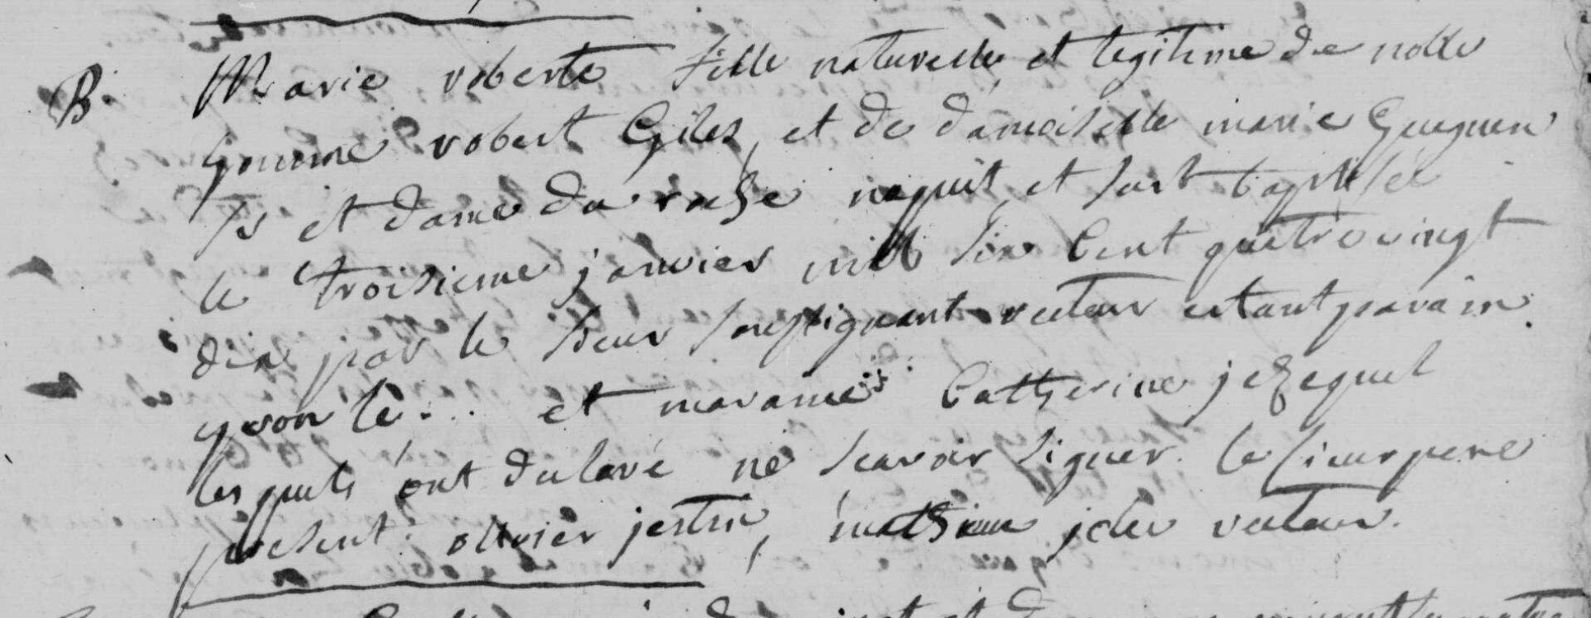 B. Marie roberte fille naturelle et legitime de noble
homme robert Gyles, et de damoiselle marie Gueguen
srs et dame du roche naquit et fust baptisée
le troisieme janvier mill six Cent quatre vingt
dix par le sieur soussignant recteur estant parain
yvon le... et maraine Catherine jezequel
lesquels ont declaré ne scavoir signer. le sieur pere
present. ollivier jestin, mathieu recteur.